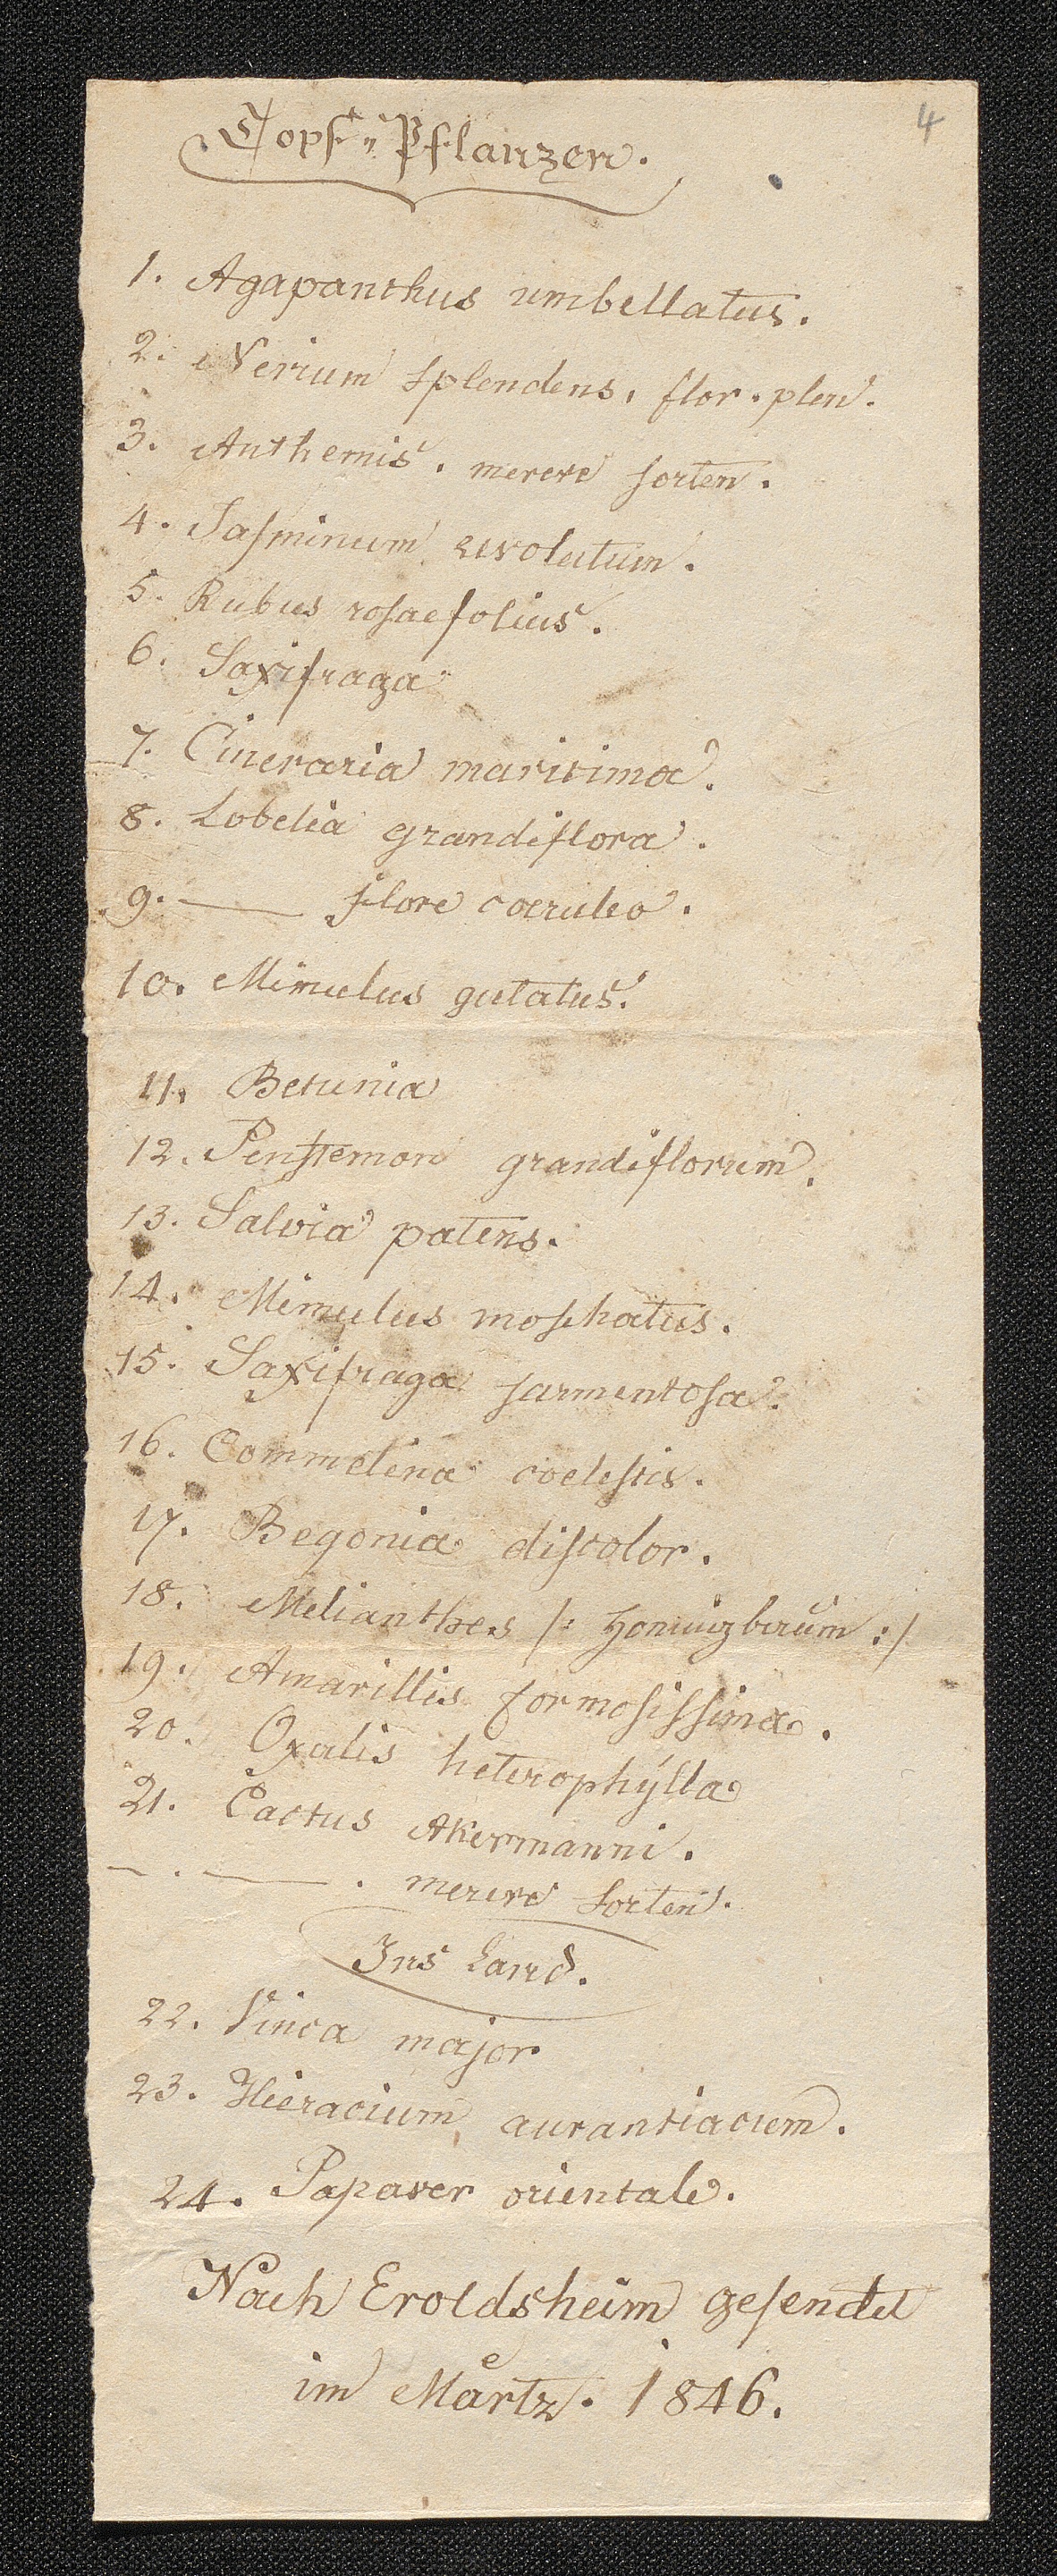 4
Topf-Pflanzen.
1. Agapanthus umbellatus.
2. Nerium splendens, flor. plen.
3. Anthemis. merere sorten.
4. Jasminum revolutum.
5. Rubus rosaefolius.
6. Saxifraga
7. Cineraria maritima.
8. Lobelia grandiflora.
9. —— flore coeruleo.
10. Mimulus gutatus.
11. Betunia
12. Penstemon grandiflorum.
13. Salvia patens.
14. Mimulus moschatus.
15. Saxifraga sarmentosa.
16. Commelina coelestis.
17. Begonia discolor.
18. Melianthes /: Honnigbaum :/
19. Amarillis formosissima.
20. Oxalis heterophÿlla
21. Cactus Akermanni.
— . —— . merere Sorten.
Ins Land.
22. Vinca major
23. Hieracium aurantiacum.
24. Papaver orientale.
Nach Eroldsheim gesendet
im Märtz. 1846.